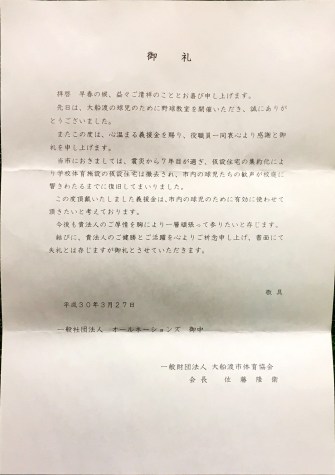 御 礼
拝啓 早春の候、益々ご清祥のこととお喜び申し上げます。
先日は、大船渡の球児のために野球教室を開催いただき、誠にありが
とうございました。
またこの度は、心温まる義援金を賜り、役職員一同衷心より感謝と御
礼を申し上げます。
当市におきましては、震災から7年目が過ぎ、仮設住宅の集約化によ
り学校体育施設の仮設住宅は撤去され、市内の球児たちの歓声が校庭に
響きわたるまでに復旧してまいりました。
この度頂戴いたしました義援金は、市内の球児のために有効に使わせて
頂きたいと考えております。
今後も貴法人のご厚情を胸により一層頑張って参りたいと存じます。
結びに、貴法人のご健勝とご活躍を心よりご祈念申し上げ、書面にて
失礼とは存じますが御礼とさせていただきます。
敬 具
平成30年3月27日
一般社団法人 オールネーションズ 御中
一般財団法人 大船渡市体育協会
会 長 佐 藤 隆